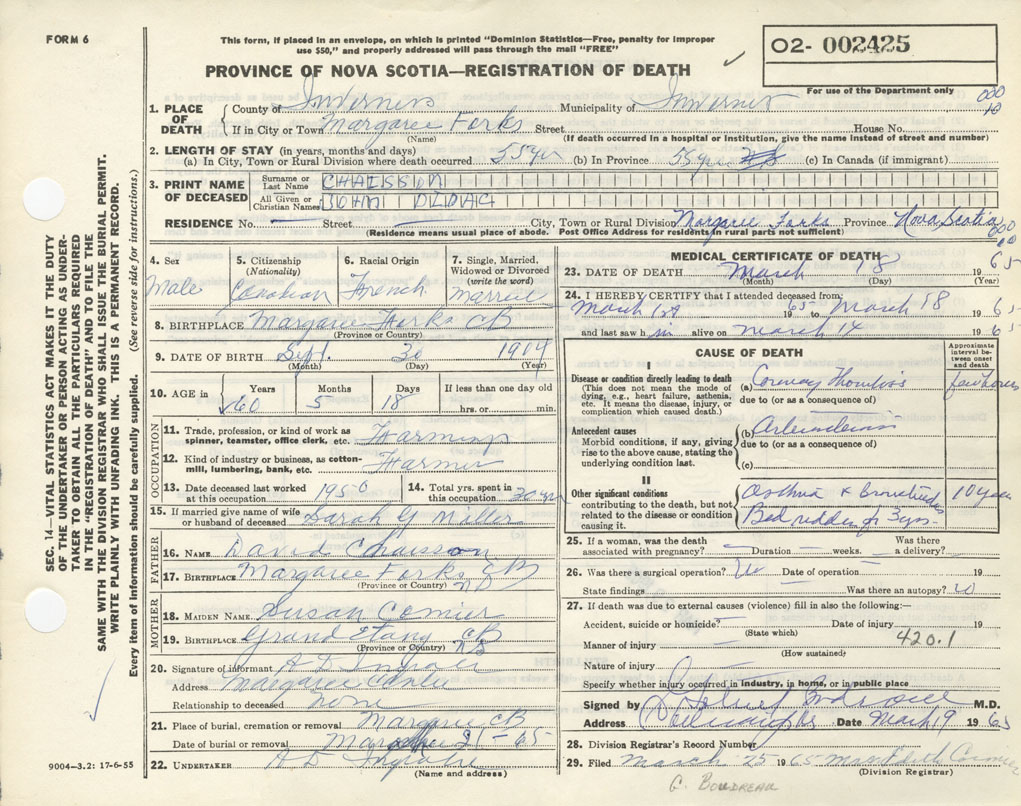 FORM 6
This form, if placed in an envelope, on which is printed "Dominion Statistics—Free, penalty for improper
use $50," and properly addressed will pass through the mail "FREE"
O2- 002425
PROVINCE OF NOVA SCOTIA—REGISTRATION OF DEATH
For use of the Department only
1. PLACE OF DEATH
County of Inverness Municipality of Inverness
If in City or Town Margaree Forks Street House No.
(Name) (If death occurred in a hospital or institution, give the name instead of street and number)
2. LENGTH OF STAY (in years, months and days)
(a) In City, Town or Rural Division where death occurred 55 yr (b) In Province 55 yrs (c) In Canada (if immigrant)
3. PRINT NAME OF DECEASED
Surname or Last Name CHAISSON
All Given or Christian Names JOHN
RESIDENCE No. Street City, Town or Rural Division Margaree Forks Province Nova Scotia
(Residence means usual place of abode. Post Office Address for residents in rural parts not sufficient)
4. Sex Male
5. Citizenship (Nationality) Canadian
6. Racial Origin French
7. Single, Married, Widowed or Divorced (write the word) Married
8. BIRTHPLACE Margaree Forks CB
(Province or Country)
9. DATE OF BIRTH Sept. 30 1904
(Month) (Day) (Year)
10. AGE in Years 60 Months 5 Days 18 If less than one day old hrs. or min.
OCCUPATION
11. Trade, profession, or kind of work as spinner, teamster, office clerk, etc. Farming
12. Kind of industry or business, as cotton-mill, lumbering, bank, etc. Farmer
13. Date deceased last worked at this occupation 1950
14. Total yrs. spent in this occupation 30 yrs
15. If married give name of wife or husband of deceased Sarah G Miller
FATHER
16. NAME David Chaisson
17. BIRTHPLACE Margaree Forks CB
(Province or Country) NS
MOTHER
18. MAIDEN NAME Susan
19. BIRTHPLACE Grand Etang CB
(Province or Country) NS
20. Signature of informant A D
Address Margaree
Relationship to deceased None
21. Place of burial, cremation or removal Margaree CB
Date of burial or removal 21-65
22. UNDERTAKER A D
(Name and address)
MEDICAL CERTIFICATE OF DEATH
23. DATE OF DEATH March 18 1965
(Month) (Day) (Year)
24. I HEREBY CERTIFY that I attended deceased from:
March 1st 1965 to March 18 1965
and last saw him alive on March 14 1965
CAUSE OF DEATH
Approximate interval between onset and death
I
Disease or condition directly leading to death
(This does not mean the mode of dying, e.g., heart failure, asthenia, etc. It means the disease, injury, or complication which caused death.)
(a) Coronary Thrombosis few hours
due to (or as a consequence of)
Antecedent causes
Morbid conditions, if any, giving rise to the above cause, stating the underlying condition last.
(b)
due to (or as a consequence of)
(c)
II
Other significant conditions
contributing to the death, but not related to the disease or condition causing it.
Asthma & bronchitis 10 years
Bed ridden for 3 yrs-
25. If a woman, was the death associated with pregnancy? Duration weeks. Was there a delivery?
26. Was there a surgical operation? Date of operation 19
State findings Was there an autopsy?
27. If death was due to external causes (violence) fill in also the following:—
Accident, suicide or homicide? Date of injury 19
(State which)
Manner of injury 420.1
(How sustained)
Nature of injury
Specify whether injury occurred in industry, in home, or in public place
Signed by M.D.
Address Date March 19 1965
28. Division Registrar's Record Number
29. Filed March 25 1965 Mrs Edith Cormier
(Division Registrar)
G. BOUDREAU
SEC. 14—VITAL STATISTICS ACT MAKES IT THE DUTY
OF THE UNDERTAKER OR PERSON ACTING AS UNDER-
TAKER TO OBTAIN ALL THE PARTICULARS REQUIRED
IN THE "REGISTRATION OF DEATH" AND TO FILE THE
SAME WITH THE DIVISION REGISTRAR WHO SHALL ISSUE THE BURIAL PERMIT.
WRITE PLAINLY WITH UNFADING INK. THIS IS A PERMANENT RECORD.
Every item of information should be carefully supplied. (See reverse side for instructions.)
9004—3.2: 17-6-55